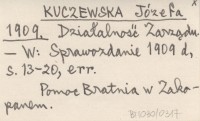 KUCZEWSKA Józefa
1909. Działalność Zarządu
– W: Sprawozdanie 1909 r,
s. 13-20, err.
Pomoc Bratnia w Zako-
panem.